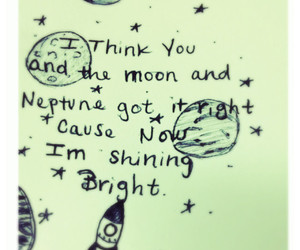 I Think You
and the moon and
Neptune got it right
Cause Now
Im shining
Bright.